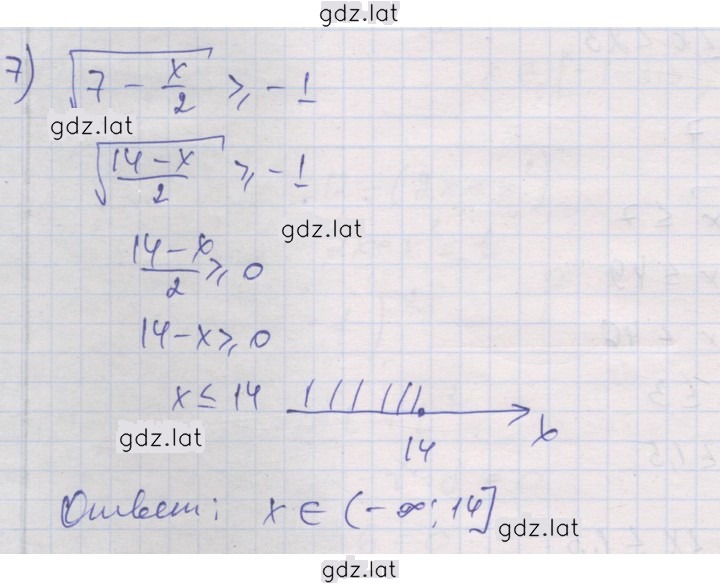 gdz.lat
7) √(7 - x/2) ⩾ -1
gdz.lat
√((14-x)/2) ⩾ -1
gdz.lat
(14-x)/2 ⩾ 0
14-x ⩾ 0
x ≤ 14
x
gdz.lat
14
Ответ: x ∈ (-∞; 14]
gdz.lat
gdz.lat